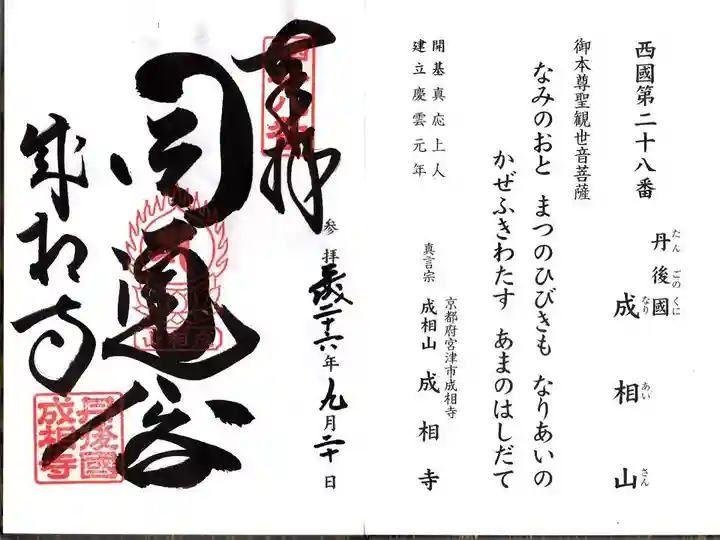 西國第二十八番
丹後國 成相山
たん ごの くに なり あい さん
御本尊聖観世音菩薩
なみのおと まつのひびきも なりあいの
かぜふきわたす あまのはしだて
開基真応上人
建立慶雲元年
京都府宮津市成相寺
真言宗 成相山 成相寺
奉拝
参拝 平成二十六年 九月二十日
圓通
成相寺
丹後國
成相寺
成相山